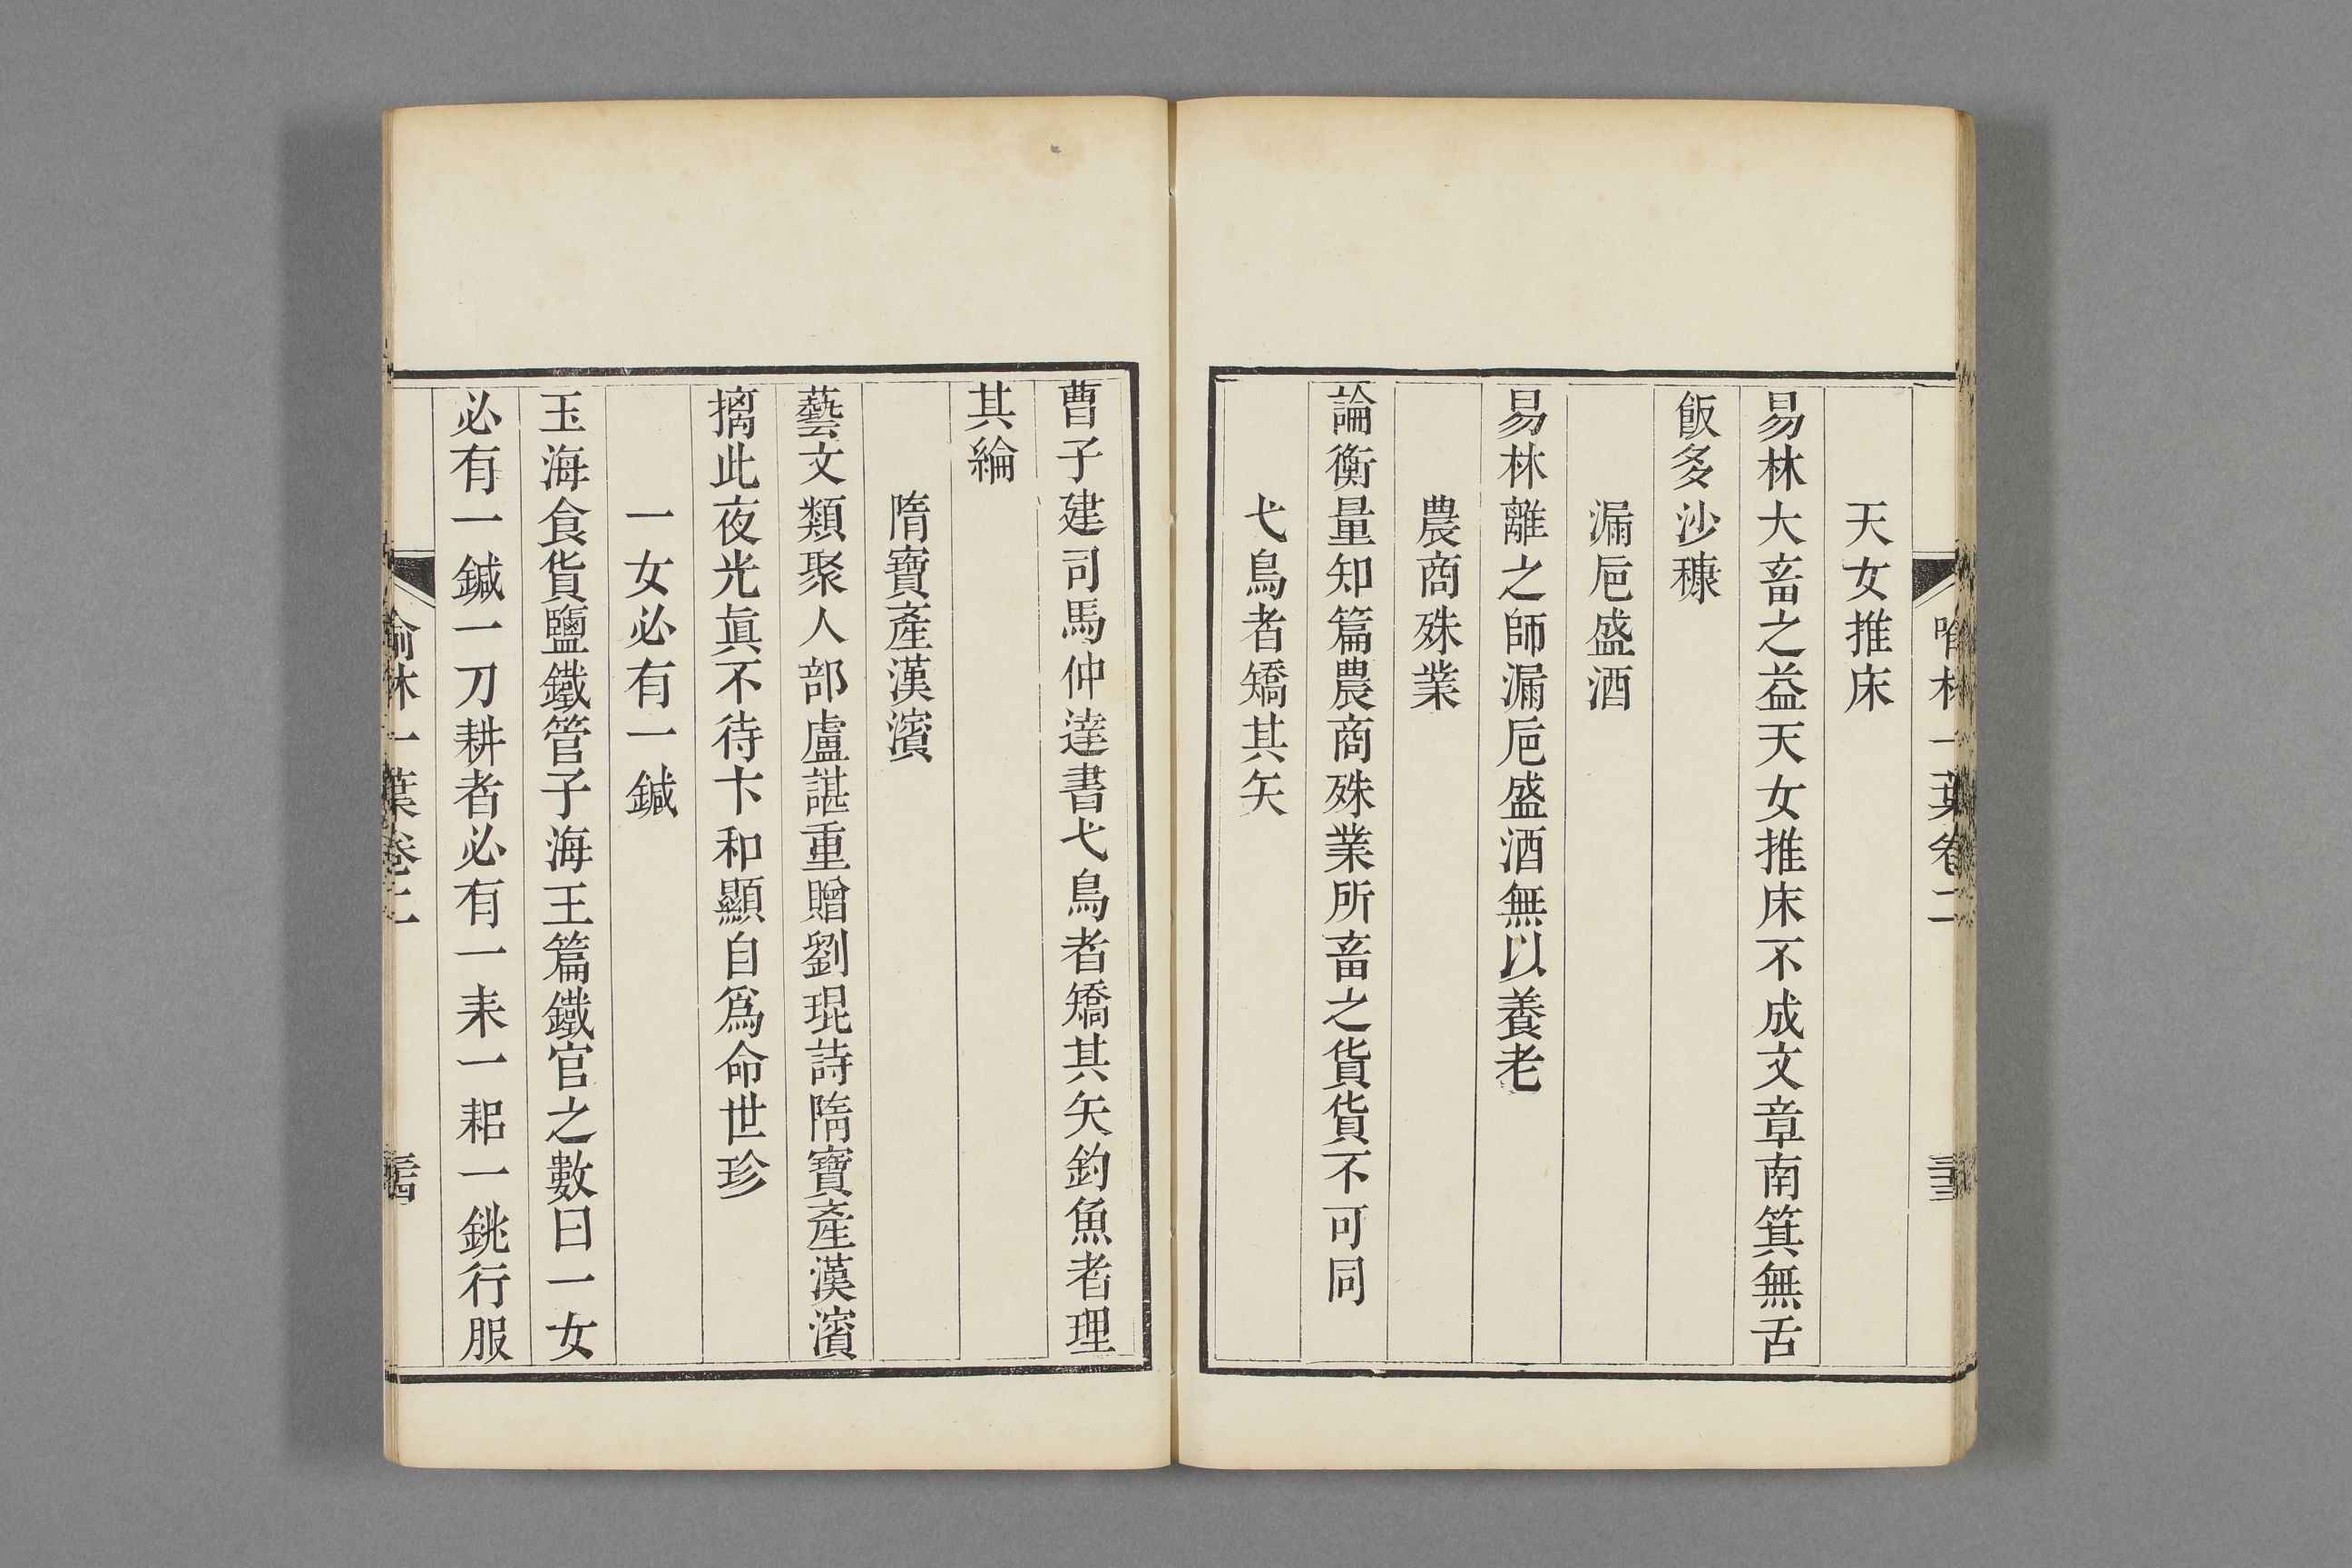 天女推床
易林大畜之益天女推床不成文章南箕無舌
飯多沙糠
漏巵盛酒
易林離之師漏巵盛酒無以養老
農商殊業
論衡量知篇農商殊業所畜之貨貨不可同
弋鳥者矯其矢
曹子建司馬仲達書弋鳥者矯其矢釣魚者理
其綸
隋寶產漢濱
藝文類聚人部盧諶重贈劉琨詩隋寶產漢濱
摛此夜光眞不待卞和顯自爲命世珍
一女必有一鍼
玉海食貨鹽鐵管子海王篇鐵官之數曰一女
必有一鍼一刀耕者必有一耒一耜一銚行服
喻林一葉卷二